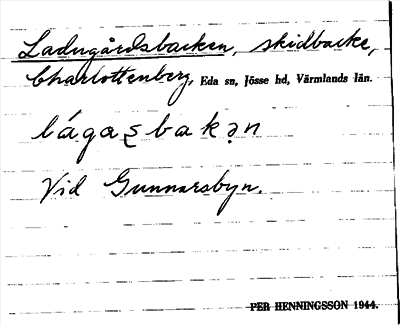 Ladugårdsbacken, skidbacke,
Charlottenberg, Eda sn, Jösse hd, Värmlands län.
lágaʂbakən
Vid Gunnarsbyn.
PER HENNINGSSON 1944.